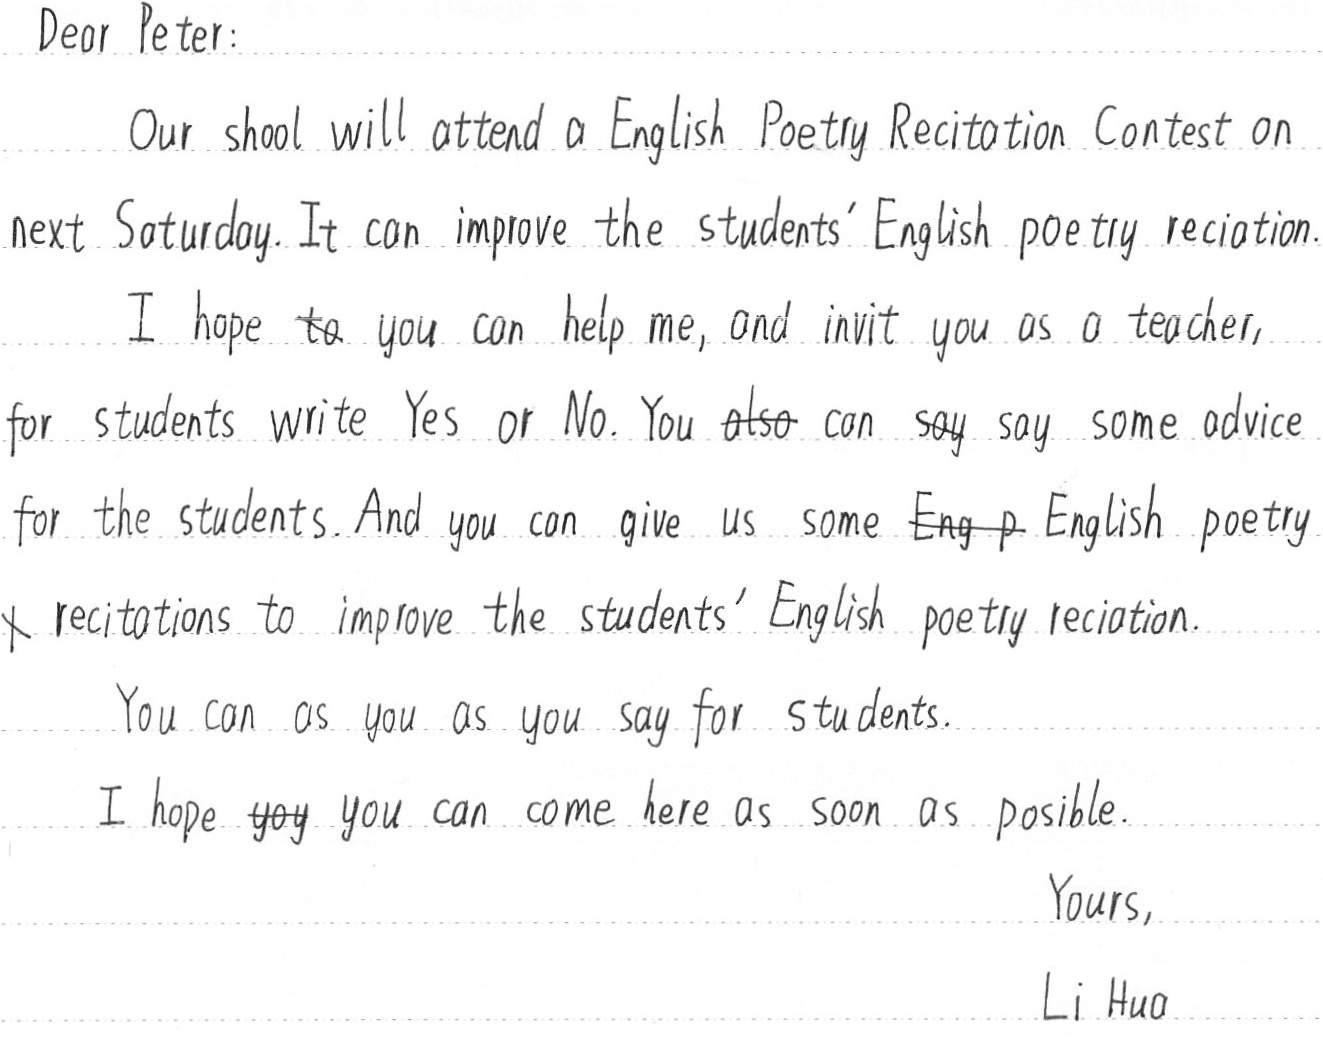 Dear Peter:
Our shool will attend a English Poetry Recitation Contest on
next Saturday. It can improve the students' English poetry reciation.
I hope to you can help me, and invit you as a teacher,
for students write Yes or No. You also can say say some advice
for the students. And you can give us some Eng p English poetry
recitations to improve the students' English poetry reciation.
You can as you as you say for students.
I hope yoy you can come here as soon as posible.
Yours,
Li Hua